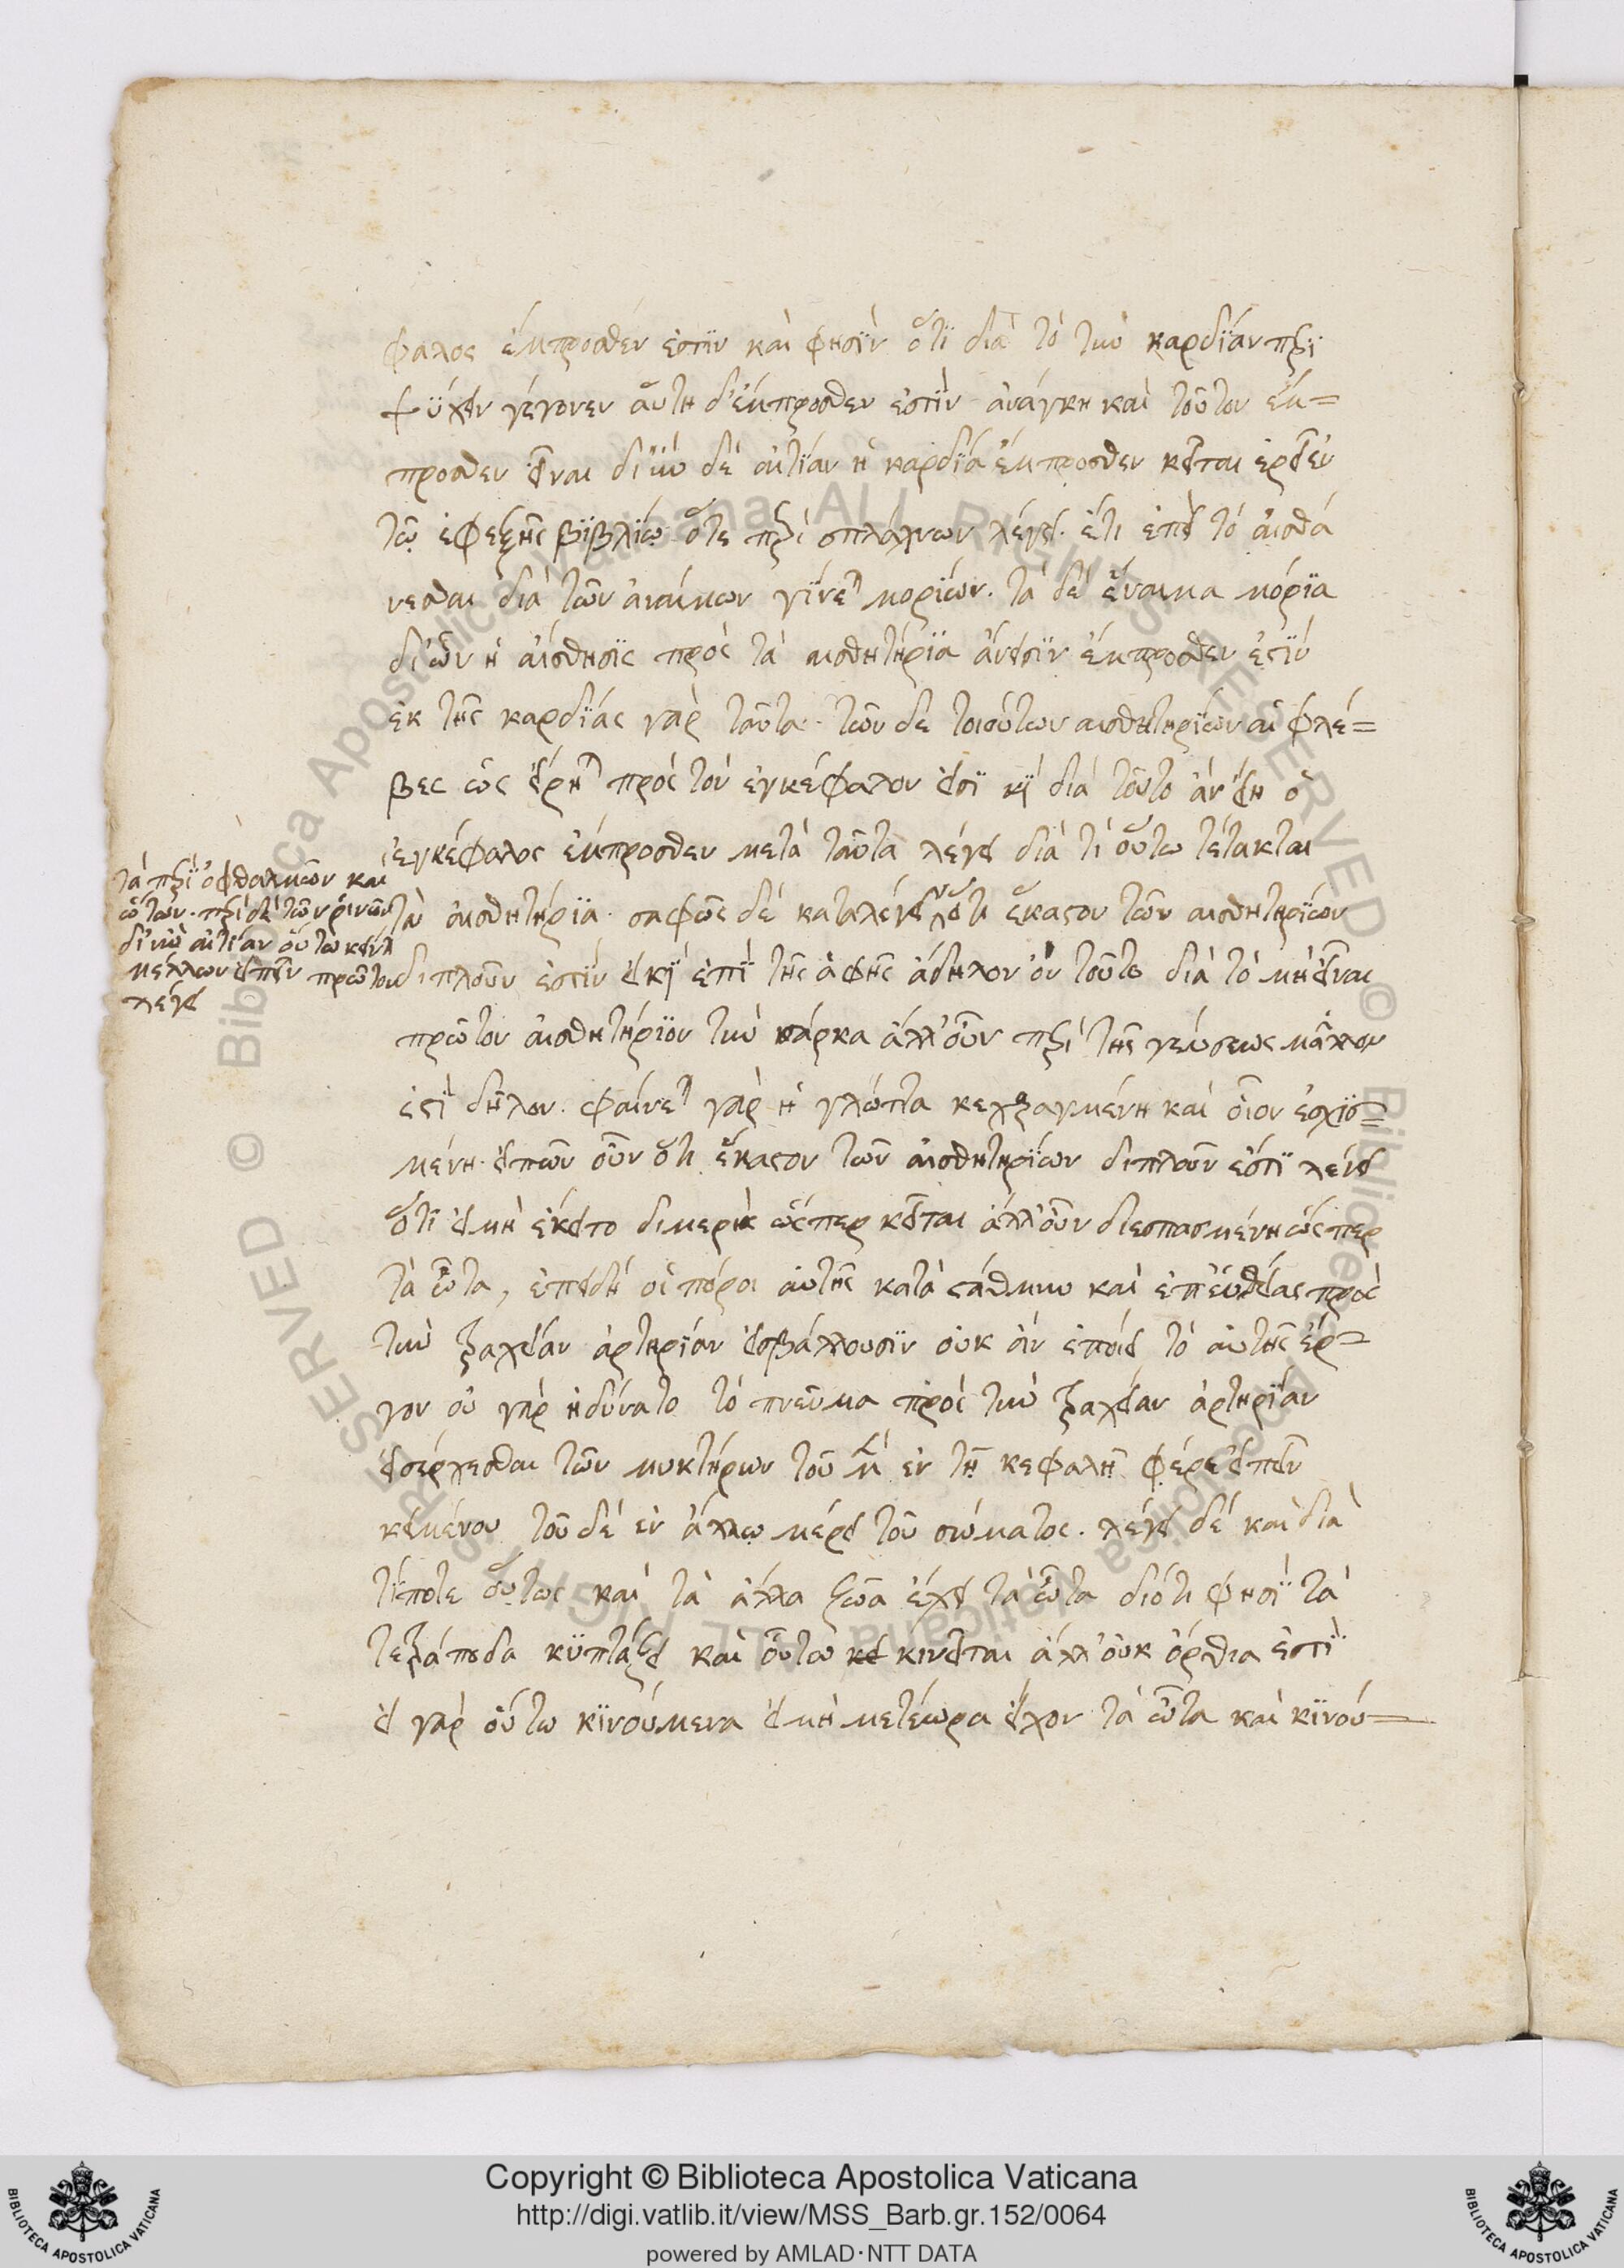 φαλος ἔμπροσθέν ἐστιν καὶ φησὶν ὅτι διὰ τὸ τὴν καρδίαν περι
ψύχειν γέγονεν αὕτη δ' ἔμπροσθεν ἐστὶν ἀνάγκη καὶ τοῦτον ἔμ=
προσθεν εἶναι δι' ἣν δὲ αἰτίαν ἡ καρδία ἔμπροσθεν κεῖται ἐρεῖ ἐν
τῷ ἐφεξῆς βιβλίῳ ὅτε περὶ σπλάχνων λέγει. ἔτι ἐπεὶ τὸ αἰσθά
νεσθαι διὰ τῶν ἐναίμων γίνεται μορίων. τὰ δὲ ἔναιμα μόρια
δι' ὧν ἡ αἴσθησις πρὸς τὰ αἰσθητήρια ἄνεισιν ἔμπροσθεν ἐστὶν
ἐκ τῆς καρδίας γὰρ ταῦτα. τῶν δὲ τοιούτων αἰσθητηρίων αἱ φλέ=
βες ὡς εἴρηται πρὸς τὸν ἐγκέφαλον εἰσὶ καὶ διὰ τοῦτο ἂν εἴη ὁ
ἐγκέφαλος ἔμπροσθεν μετὰ ταῦτα λέγει διὰ τί οὕτω τέτακται
τὰ περὶ ὀφθαλμῶν καὶ
ὤτων. περὶ δὲ τῶν ῥινῶν
δι' ἣν αἰτίαν οὕτω κεῖνται
μέλλων εἰπεῖν πρῶτον
λέγει
τὰ αἰσθητήρια. σαφῶς δὲ καταλέγει ὅτι ἕκαστον τῶν αἰσθητηρίων
διπλοῦν ἐστὶν εἰ καὶ ἐπὶ τῆς ἁφῆς ἄδηλον ὂν τοῦτο διὰ τὸ μὴ εἶναι
πρῶτον αἰσθητήριον τὴν σάρκα ἀλλ' οὖν περὶ τῆς γεύσεως μᾶλλον
ἐστὶ δῆλον. φαίνεται γὰρ ἡ γλῶττα κεχαραγμένη καὶ οἷον ἐσχισ=
μένη. εἰπὼν οὖν ὅτι ἕκαστον τῶν αἰσθητηρίων διπλοῦν ἐστὶ λέγει
ὅτι εἰ μὴ ἔκειτο διμερὴς ὥσπερ κεῖται ἀλλ' οὖν διεσπασμένη ὥσπερ
τὰ ὦτα, ἐπειδὴ οἱ πόροι αὐτῆς κατὰ στάθμην καὶ ἐπ' εὐθείας πρὸς
τὴν τραχεῖαν ἀρτηρίαν εἰσβάλλουσιν οὐκ ἂν ἐποίει τὸ αὐτῆς ἔρ=
γον οὐ γὰρ ἠδύνατο τὸ πνεῦμα πρὸς τὴν τραχεῖαν ἀρτηρίαν
εἰσέρχεσθαι τῶν μυκτήρων τοῦ μὲν ἐν τῇ κεφαλῇ φέρε εἰπεῖν
κειμένου τοῦ δὲ ἐν ἄλλῳ μέρει τοῦ σώματος. λέγει δὲ καὶ διὰ
τί ποτε οὕτως καὶ τὰ ἄλλα ζῶα ἔχει τὰ ὦτα διότι φησὶ τὰ
τετράποδα κυπτάζει καὶ οὕτω κινεῖται ἀλλ' οὐκ ὄρθια ἐστὶ
εἰ γὰρ οὕτω κινούμενα εἰ μὴ μετέωρα εἶχον τὰ ὦτα καὶ κινού=
Copyright © Biblioteca Apostolica Vaticana
http://digi.vatlib.it/view/MSS_Barb.gr.152/0064
powered by AMLAD·NTT DATA